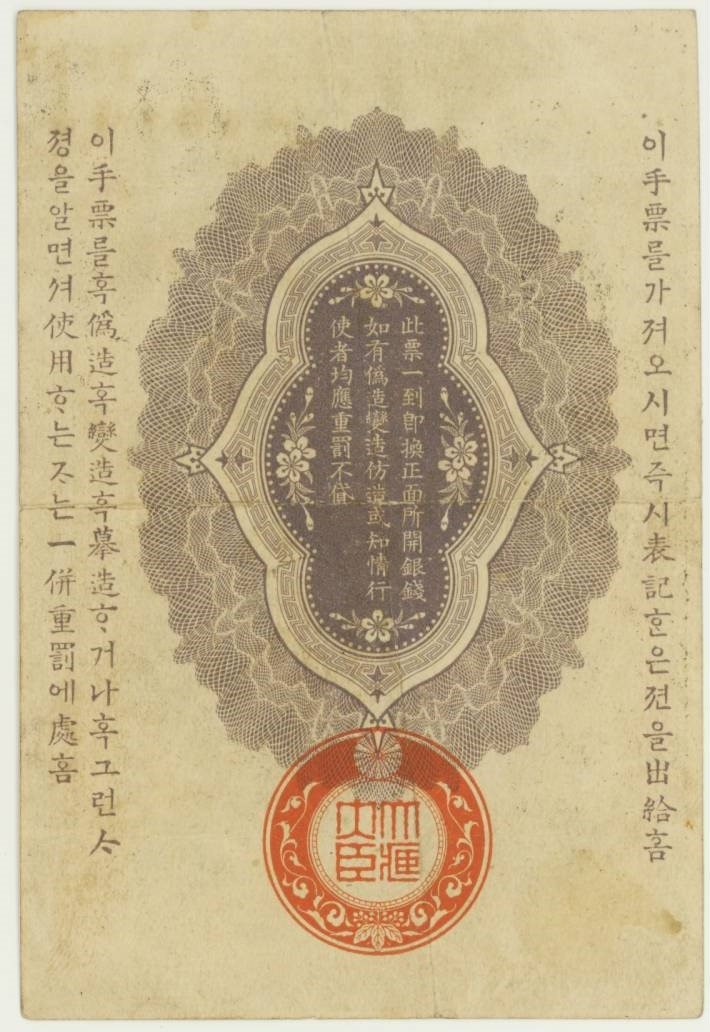 이手票를가져오시면즉시表記ᄒᆞᆫ은젼을出給홈
此票一到卽換正面所開銀錢
如有僞造變造仿造或知情行
使者均應重罰不貸
이手票를혹僞造혹變造혹摹造ᄒᆞ거나혹그런ᄉᆞ
졍을알면셔使用ᄒᆞ는ᄌᆞ는一併重罰에處홈
大藏
大臣